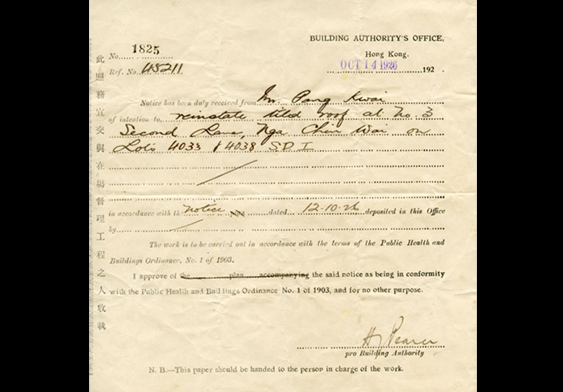 BUILDING AUTHORITY'S OFFICE,
Hong Kong,
No. 1825
OCT 14 1926 192
Ref. No. 45211
Notice has been duly received from Mr. Pang Kwai
of intention to reinstate tiled roof at No. 3
Second Lane, Nga Chin Wai on
Lots 4033 & 4038 S.D. I
in accordance with the notice dated 12-10-26 deposited in this Office
by
The work is to be carried out in accordance with the terms of the Public Health and
Buildings Ordinance, No. 1 of 1903.
I approve of the plan accompanying the said notice as being in conformity
with the Public Health and Buildings Ordinance No. 1 of 1903, and for no other purpose.
pro Building Authority
N. B.—This paper should be handed to the person in charge of the work.
此照務宜交與在場督理工程之人收執